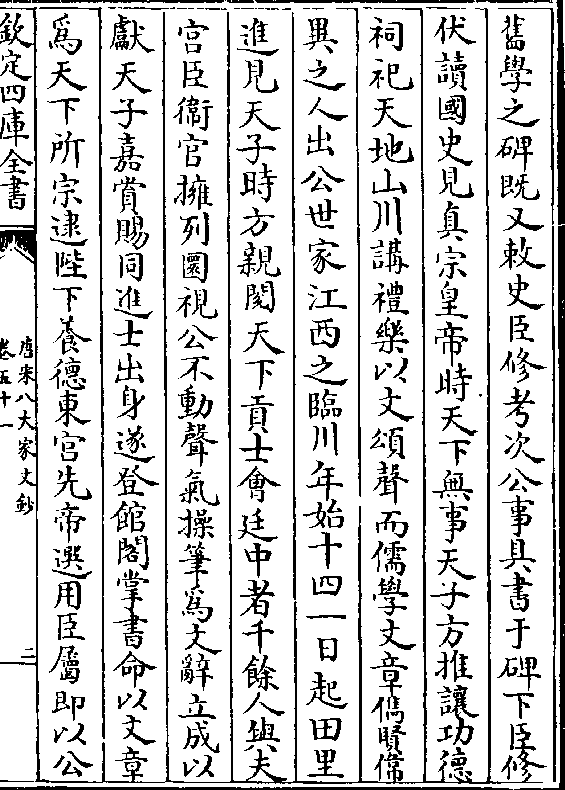 舊學之碑既又敕史臣修考次公事具書于碑下臣修
伏讀國史見真宗皇帝時天下無事天子方推讓功德
祠祀天地山川講禮樂以文頌聲而儒學文章儁賢偉
異之人出公世家江西之臨川年始十四一日起田里
進見天子時方親閲天下貢士會廷中者千餘人與夫
宫臣衞官擁列圜視公不動聲氣操筆為文辭立成以
獻天子嘉賞賜同進士出身遂登館閣掌書命以文章
為天下所宗逮陛下養德東宫先帝選用臣屬即以公
欽定四庫全書
唐宋八大家文鈔
卷五十一
二